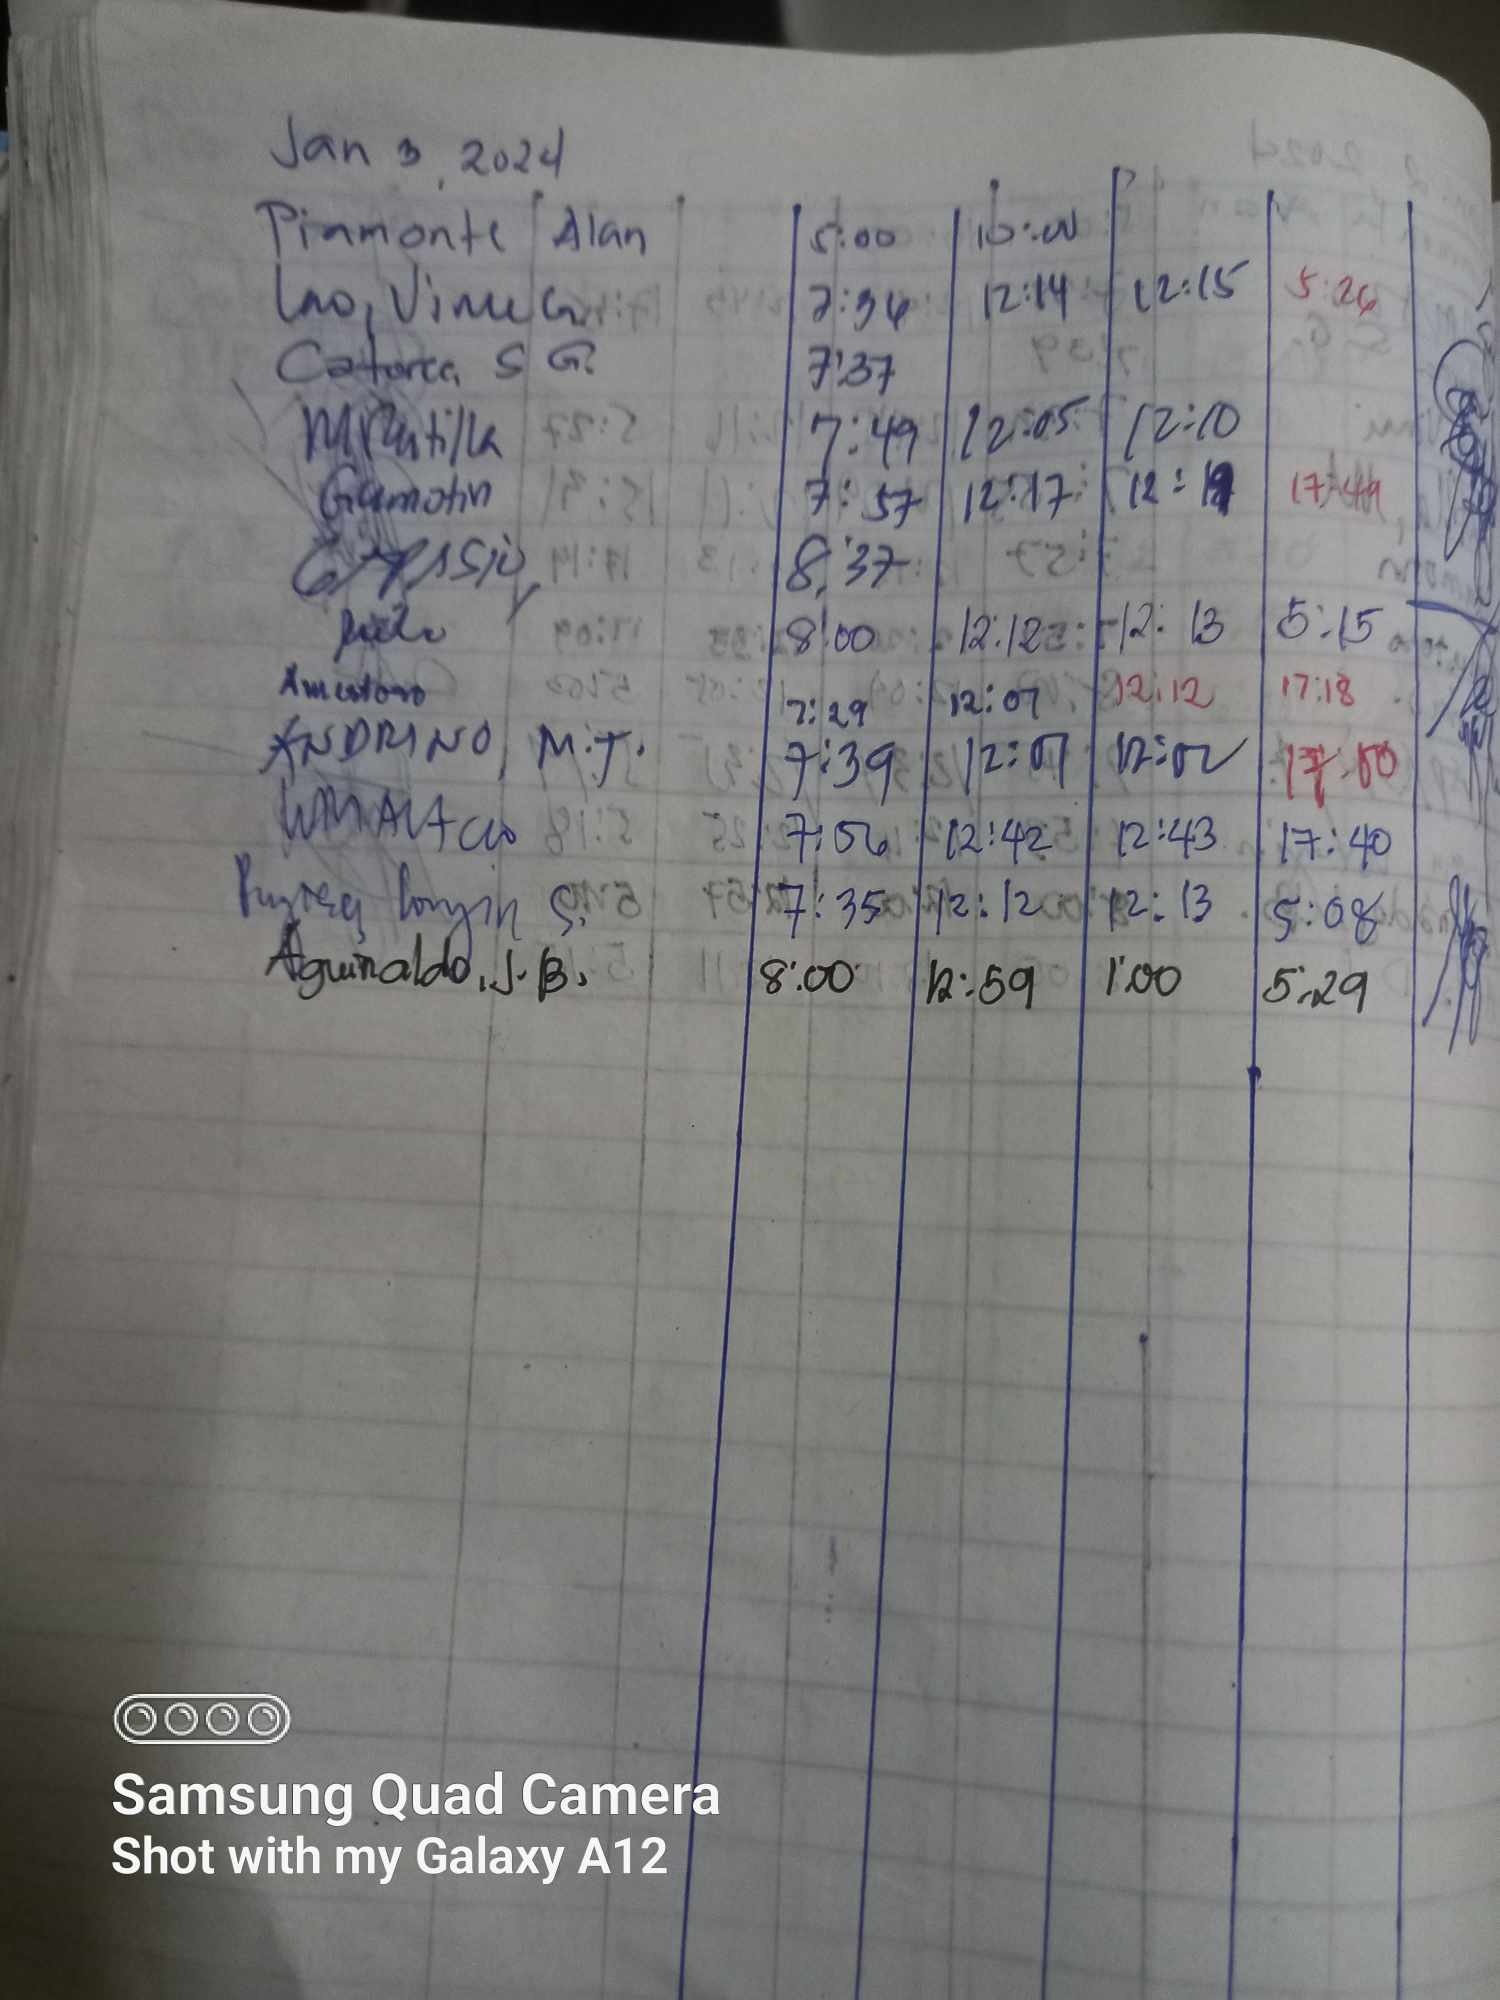 Jan 3, 2024
Piamonte Alan 5:00 10:00
Lao, Vince G. 7:36 12:14 12:15 5:26
Catorce, S G. 7:37
7:49 12:05 12:10
Gamotin 7:57 12:17 12:19 17:49
8:37
8:00 12:12 12:13 5:15
Amestoso 7:29 12:07 12:12 17:18
ANDRINO, M.T. 7:39 12:01 12:02 17:50
7:06 12:42 12:43 17:40
S. 7:35 12:12 12:13 5:08
Aguinaldo, J. B. 8:00 12:59 1:00 5:29
Samsung Quad Camera
Shot with my Galaxy A12